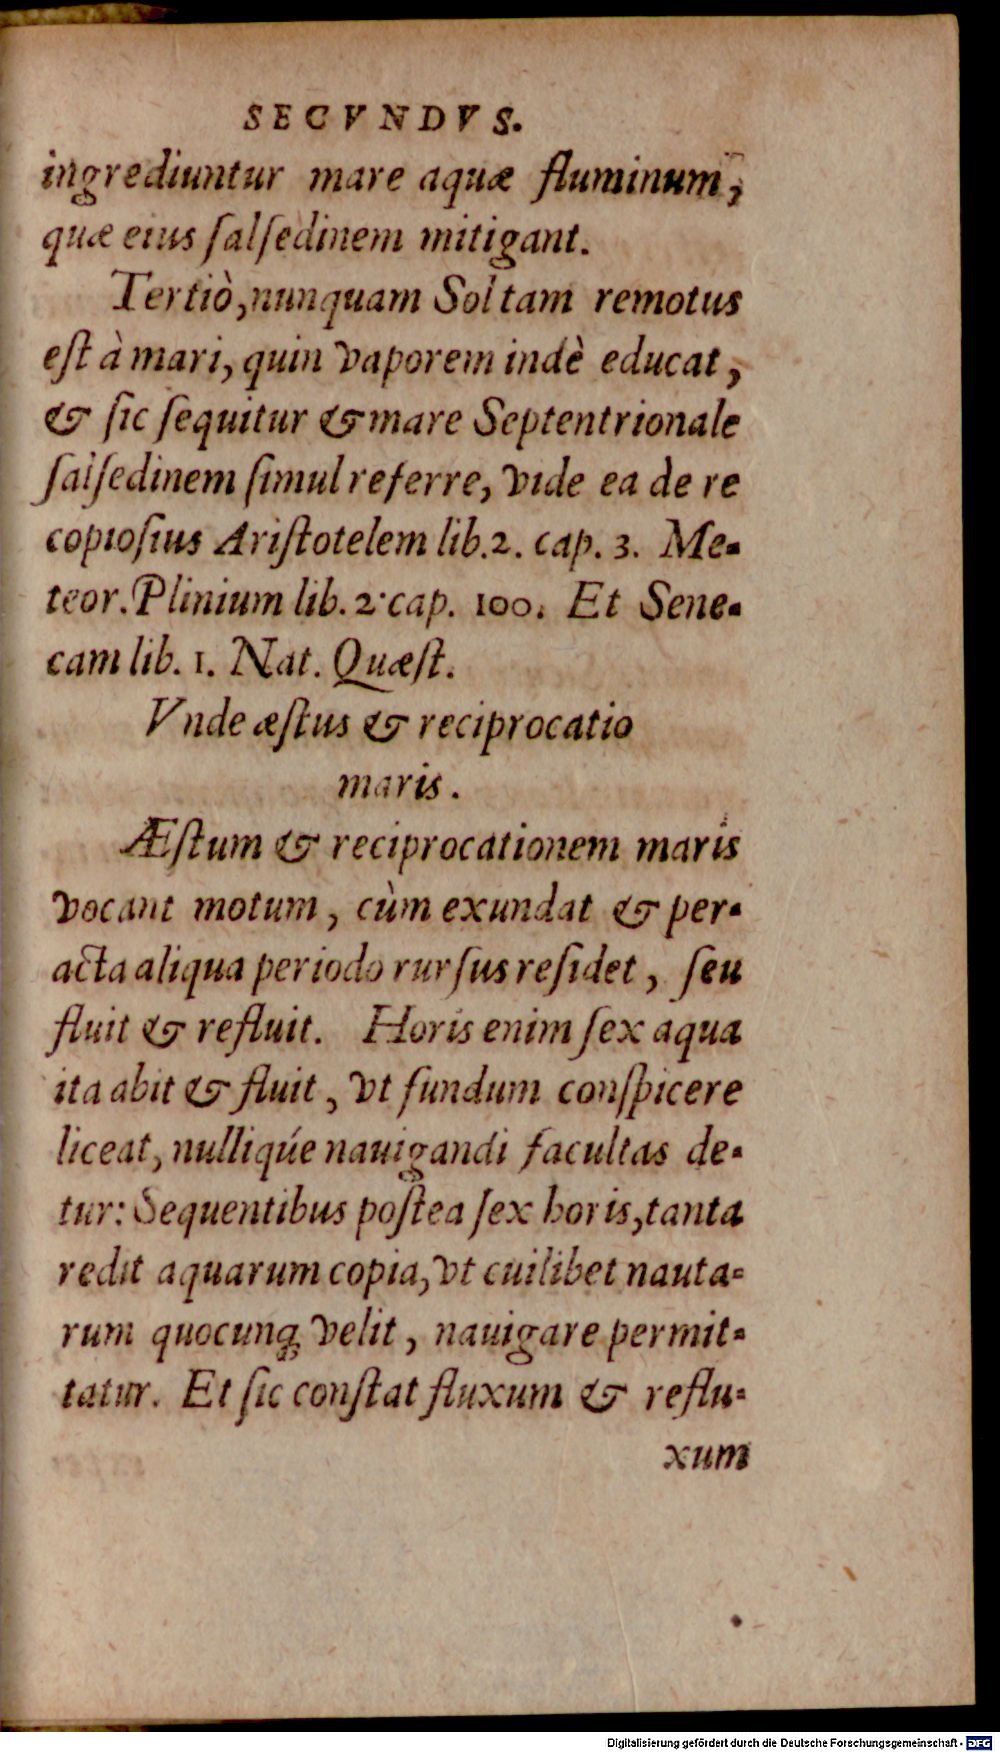 SECVNDVS.
ingrediuntur mare aquæ fluminum,
quæ eius ſalſedinem mitigant.
Tertiò, nunquam Sol tam remotus
eſt à mari, quin vaporem indè educat,
& ſic ſequitur & mare Septentrionale
ſalſedinem ſimul referre, vide ea de re
copioſius Ariſtotelem lib. 2. cap. 3. Me-
teor. Plinium lib. 2. cap. 100. Et Sene-
cam lib. 1. Nat. Quæſt.
Vnde æſtus & reciprocatio
maris.
Æſtum & reciprocationem maris
vocant motum, cùm exundat & per-
acta aliqua periodo rurſus reſidet, ſeu
fluit & refluit. Horis enim ſex aqua
ita abit & fluit, vt fundum conſpicere
liceat, nulliqúe nauigandi facultas de-
tur: Sequentibus poſtea ſex horis, tanta
redit aquarum copia, vt cuilibet nauta-
rum quocunq; velit, nauigare permit-
tatur. Et ſic conſtat fluxum & reflu-
xum
Digitalisierung gefördert durch die Deutsche Forschungsgemeinschaft - DFG